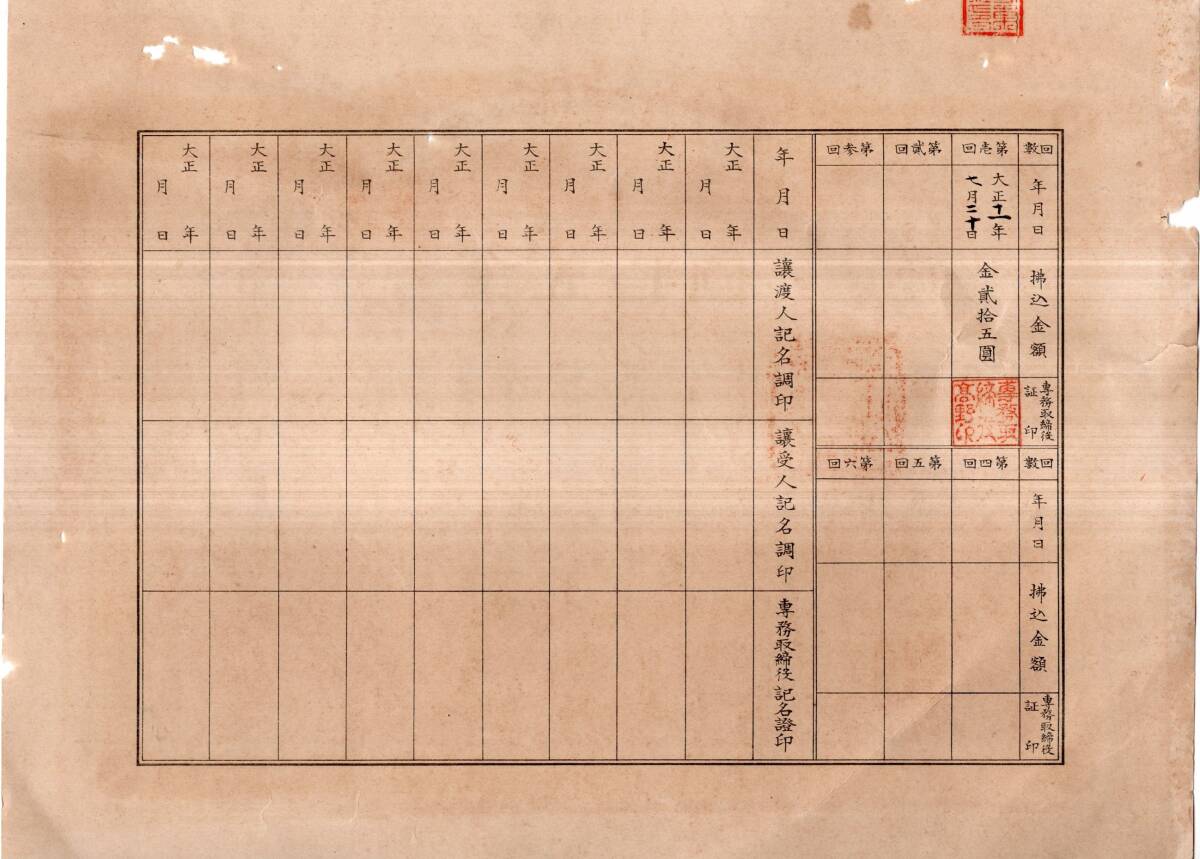 回数
年月日
拂込金額
専務取締役
証印
第壱回
大正十一年
七月二十日
金貳拾五圓
専務取
締役
高野印
第貳回
第参回
回数
年月日
拂込金額
専務取締役
証印
第四回
第五回
第六回
年月日
讓渡人記名調印
讓受人記名調印
専務取締役記名證印
大正年
月日
大正年
月日
大正年
月日
大正年
月日
大正年
月日
大正年
月日
大正年
月日
大正年
月日
大正年
月日